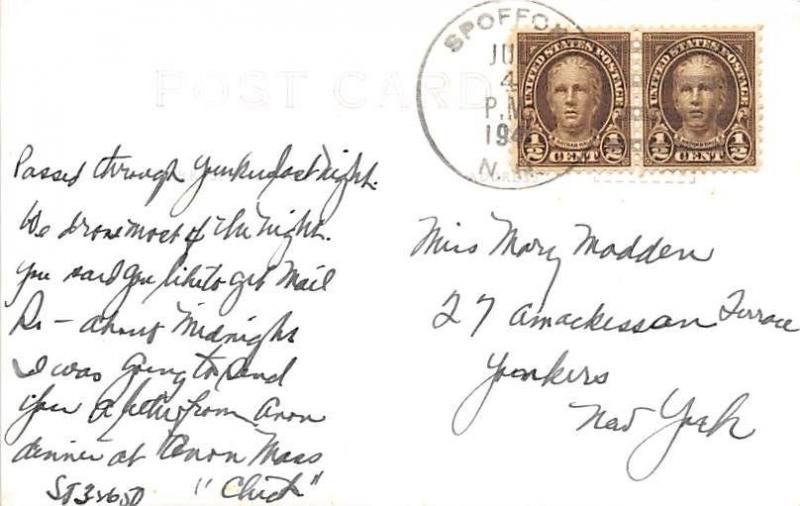 POST CARD
SPOFFO
JUL
4
P.M.
194
N.
UNITED STATES POSTAGE
NATHAN HALE
1/2 CENT 1/2
UNITED STATES POSTAGE
NATHAN HALE
1/2 CENT 1/2
Passed through Yonkers last night.
We drove most of the night.
You said you like to get mail
So – about midnight
I was going to send
you a letter from
dinner at Mass
"Chick"
Miss Mary Madden
27 Amackassan Terrace
Yonkers
New York